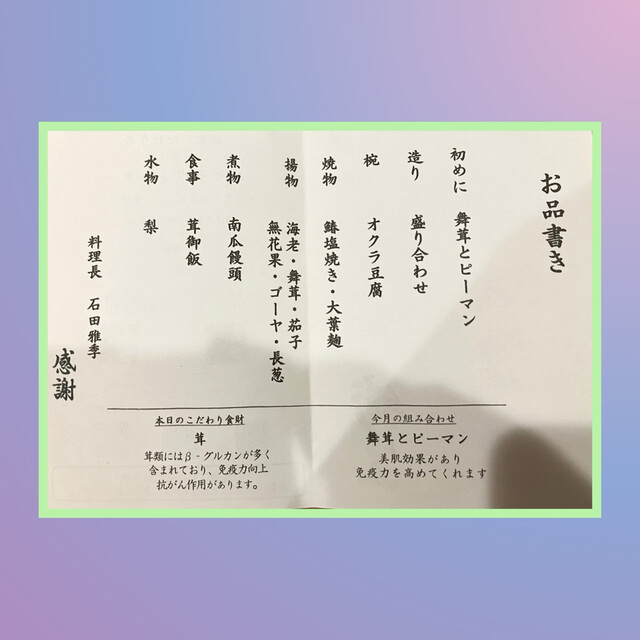 お品書き
初めに 舞茸とピーマン
造り 盛り合わせ
椀 オクラ豆腐
焼物 鰆塩焼き・大葉麹
揚物 海老・舞茸・茄子
無花果・ゴーヤ・長葱
煮物 南瓜饅頭
食事 茸御飯
水物 梨
料理長 石田雅季
感謝
今月の組み合わせ
舞茸とピーマン
美肌効果があり
免疫力を高めてくれます
本日のこだわり食財
茸
茸類にはβ-グルカンが多く
含まれており、免疫力向上
抗がん作用があります。